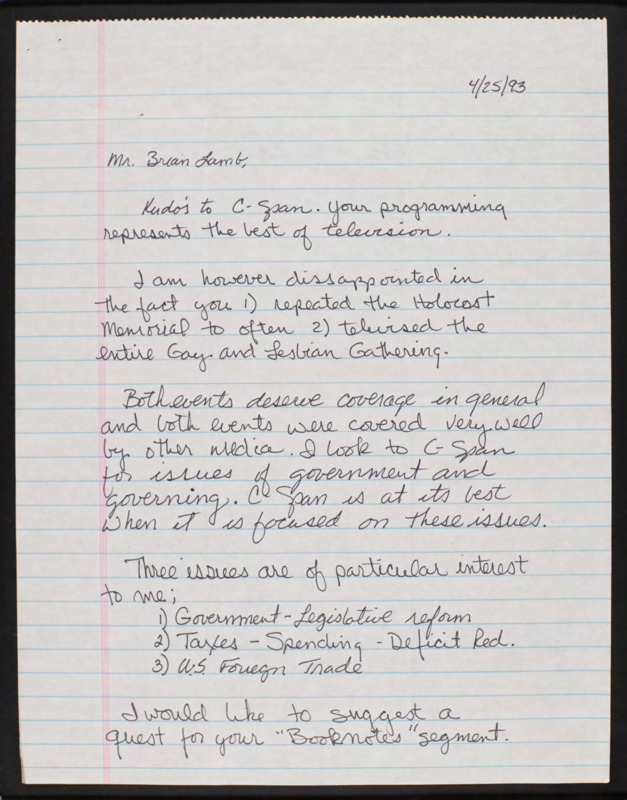 4/25/93
Mr. Brian Lamb,
Kudo's to C-Span. Your programming
represents the best of television.
I am however dissappointed in
the fact you 1) repeated the Holocost
Memorial to often 2) televised the
entire Gay and Lesbian Gathering.
Both events deserve coverage in general
and both events were covered very well
by other media. I look to C-Span
for issues of government and
governing. C-Span is at its best
when it is focused on these issues.
Three issues are of particular interest
to me;
1) Government-Legislative reform
2) Taxes - Spending - Deficit Red.
3) U.S. Foriegn Trade
I would like to suggest a
guest for your "Booknotes" segment.